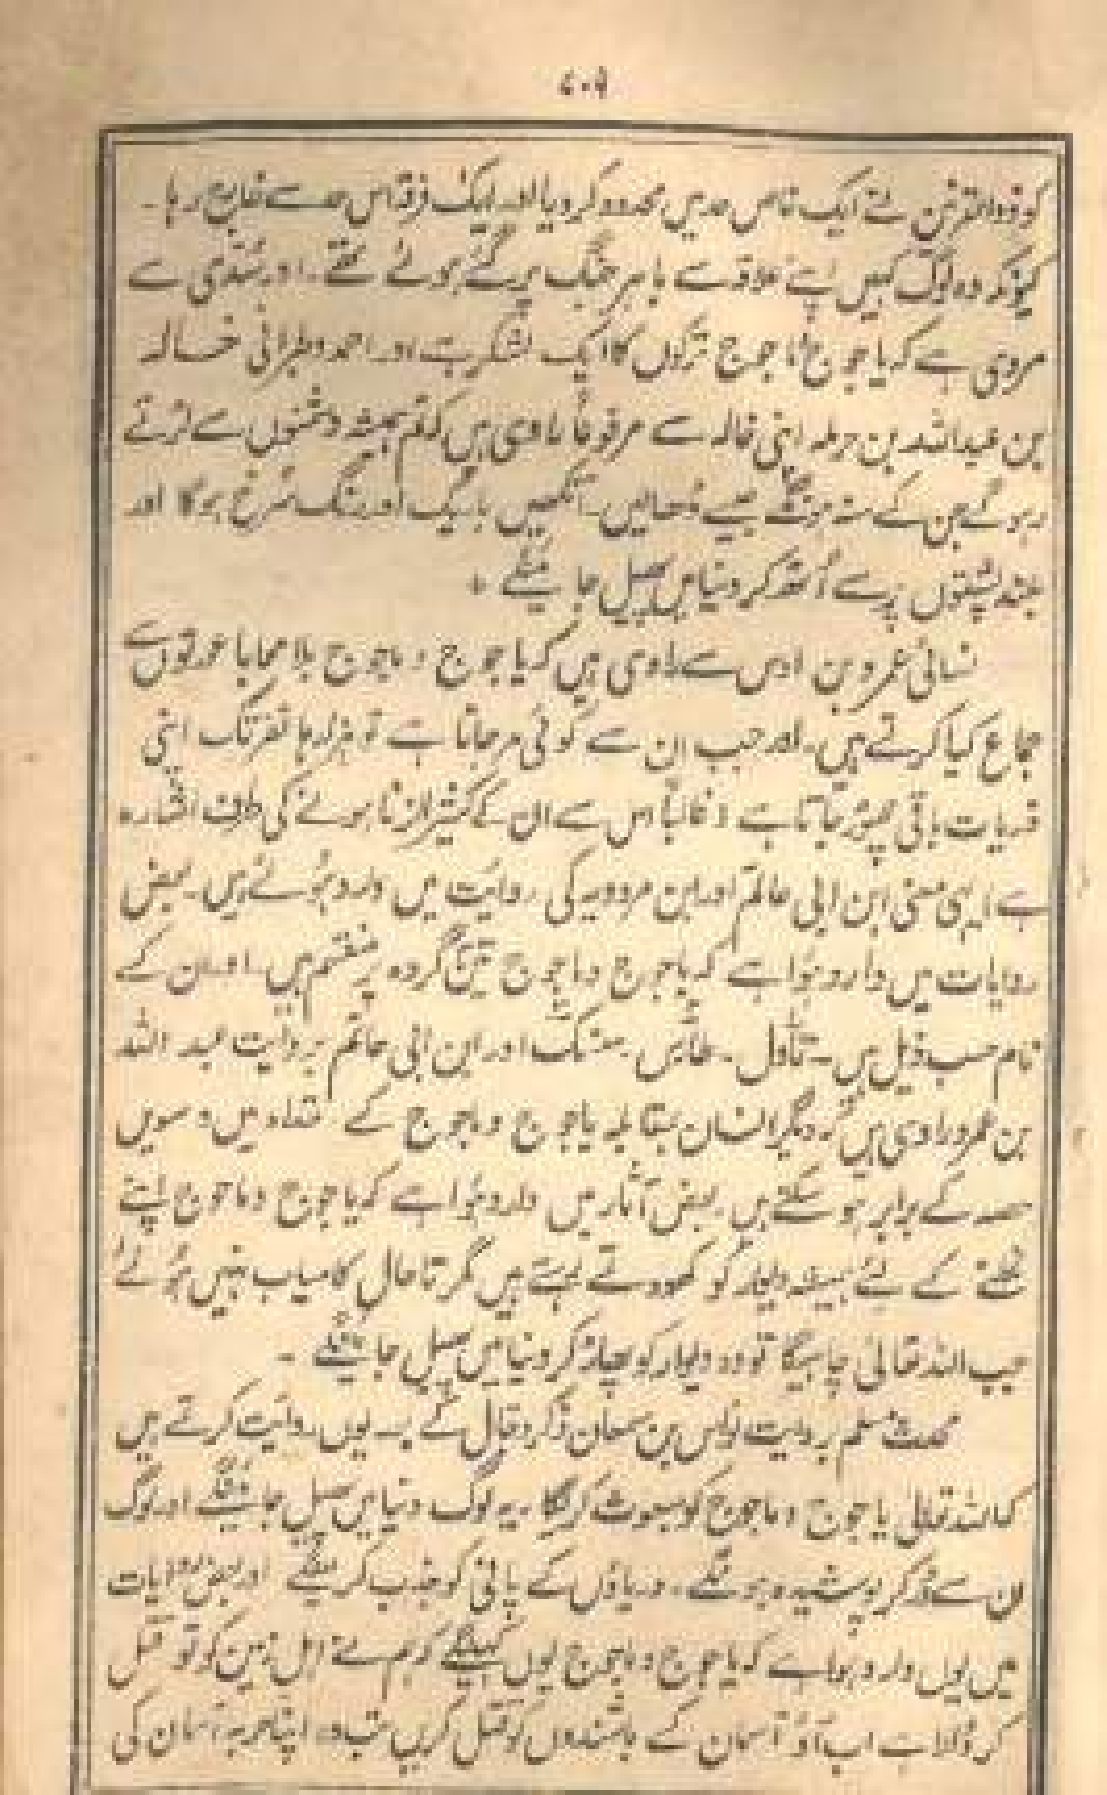 کو ذوالقرنین نے ایک خاص حد میں محدود کر دیا اور ایک فرقہ اس حد سے خارج رہا۔
کیونکہ وہ لوگ کہیں اپنے علاقہ سے باہر جنگ پر گئے ہوئے تھے۔ اور سُدّی سے
مروی ہے کہ یاجوج ماجوج ترکوں کا ایک لشکر ہے اور احمد و طبرانی خالد
بن عبداللہ بن حرملہ اپنی خالہ سے مرفوعاً راوی ہیں کہ تم ہمیشہ دشمنوں سے لڑتے
رہو گے جن کے منہ جیسے ڈھالیں۔ آنکھیں باریک اور رنگ سُرخ ہوگا اور
بلند پشتوں پر سے اُٹھ کر دنیا میں پھیل جائینگے +
نسائی عمرو بن اوس سے راوی ہیں کہ یاجوج و ماجوج بلا محابا عورتوں سے
جماع کیا کرتے ہیں۔ اور جب ان سے کوئی مرجاتا ہے تو ہزارہا نفر تک اپنی
ذریات باقی چھوڑ جاتا ہے (غالباً اس سے ان کے کثیر الزنا ہونے کی طرف اشارہ
ہے) یہی معنی ابن ابی حاتم اور ابن مردویہ کی روایت میں وارد ہوئے ہیں۔ بعض
روایات میں وارد ہوا ہے کہ یاجوج و ماجوج تین گروہ پر منقسم ہیں۔ اور ان کے
نام حسب ذیل ہیں۔ تاویل۔ طائس۔ منسک اور ابن ابی حاتم بروایت عبد اللہ
بن عمرو راوی ہیں کہ دیگر انسان بمقابلہ یاجوج و ماجوج کے تعداد میں دسویں
حصہ کے برابر ہو سکتے ہیں۔ بعض آثار میں وارد ہوا ہے کہ یاجوج و ماجوج اپنے
نکلنے کے لئے ہمیشہ دیوار کو کھودتے رہتے ہیں مگر تا حال کامیاب نہیں ہوئے
جب اللہ تعالیٰ چاہیگا تو وہ دیوار کو پھاڑ کر دنیا میں پھیل جائینگے۔
محدث مسلم بروایت نواس بن سمعان ذکر دجال کے بعد یوں روایت کرتے ہیں
کہ اللہ تعالیٰ یاجوج و ماجوج کو مبعوث کریگا۔ یہ لوگ دنیا میں پھیل جائینگے اور لوگ
ان سے ڈر کر پوشیدہ ہونگے۔ دریاؤں کے پانی کو جذب کرینگے اور بعض روایات
میں یوں وارد ہوا ہے کہ یاجوج و ماجوج یوں کہینگے کہ ہم نے اہل زمین کو تو قتل
کر ڈالا ہے اب آؤ آسمان کے باشندوں کو قتل کریں تب وہ اپنا حربہ آسمان کی